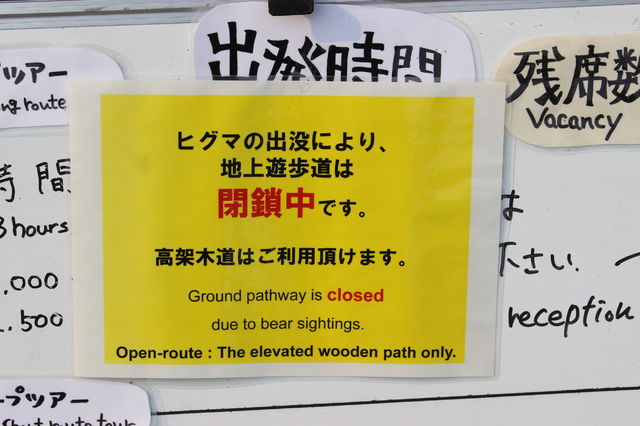 ツアー
出発時間
残席数
Vacancy
ヒグマの出没により、
地上遊歩道は
閉鎖中です。
高架木道はご利用頂けます。
Ground pathway is closed
due to bear sightings.
Open-route : The elevated wooden path only.
時間
3 hours
.000
.500
は
下さい
reception
プツアー